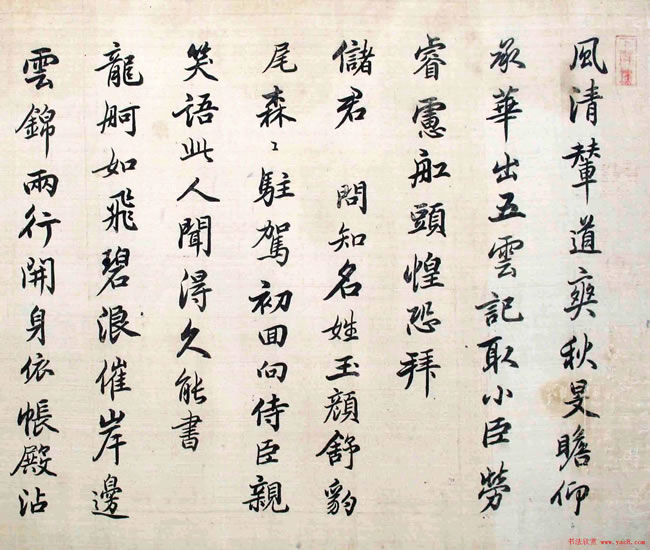 風清輦道爽秋旻瞻仰
承華出五雲記取小臣勞
睿慮舡頭惶恐拜
儲君 問知名姓玉顏舒豹
尾森〻駐駕初回向侍臣親
笑語此人聞得久能書
龍舸如飛碧浪催岸邊
雲錦兩行開身依帳殿沾
书法欣赏
www.yac8.com